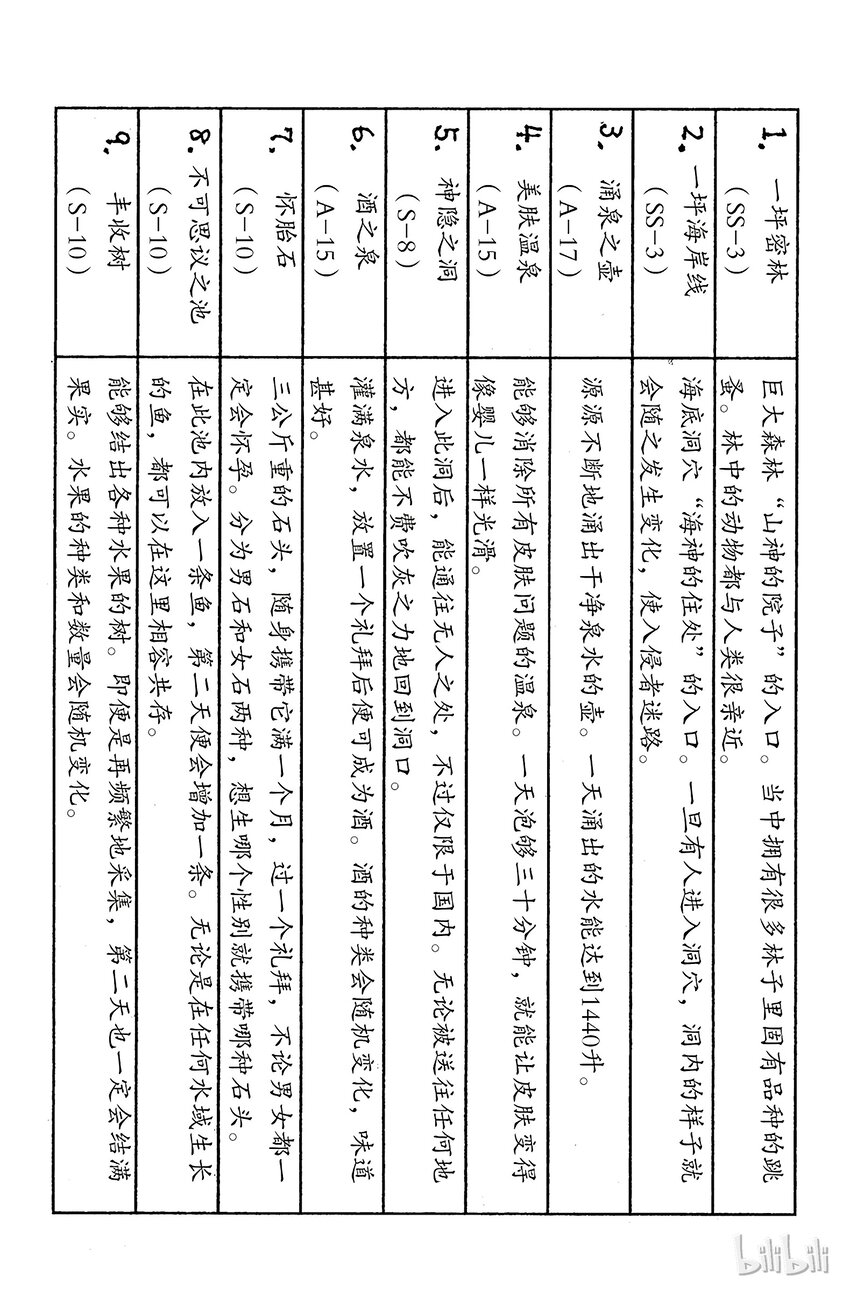 1. 一坪密林
(SS-3)
巨大森林“山神的院子”的入口。当中拥有很多林子里固有品种的跳
蚤。林中的动物都与人类很亲近。
2. 一坪海岸线
(SS-3)
海底洞穴“海神的住处”的入口。一旦有人进入洞穴，洞内的样子就
会随之发生变化，使入侵者迷路。
3. 涌泉之壶
(A-17)
源源不断地涌出干净泉水的壶。一天涌出的水能达到1440升。
4. 美肤温泉
(A-15)
能够消除所有皮肤问题的温泉。一天泡够三十分钟，就能让皮肤变得
像婴儿一样光滑。
5. 神隐之洞
(S-8)
进入此洞后，能通往无人之处，不过仅限于国内。无论被送往任何地
方，都能不费吹灰之力地回到洞口。
6. 酒之泉
(A-15)
灌满泉水，放置一个礼拜后便可成为酒。酒的种类会随机变化，味道
甚好。
7. 怀胎石
(S-10)
三公斤重的石头，随身携带它满一个月，过一个礼拜，不论男女都一
定会怀孕。分为男石和女石两种，想生哪个性别就携带哪种石头。
8. 不可思议之池
(S-10)
在此池内放入一条鱼，第二天便会增加一条。无论是在任何水域生长
的鱼，都可以在这里相容共存。
9. 丰收树
(S-10)
能够结出各种水果的树。即便是再频繁地采集，第二天也一定会结满
果实。水果的种类和数量会随机变化。
bilibili